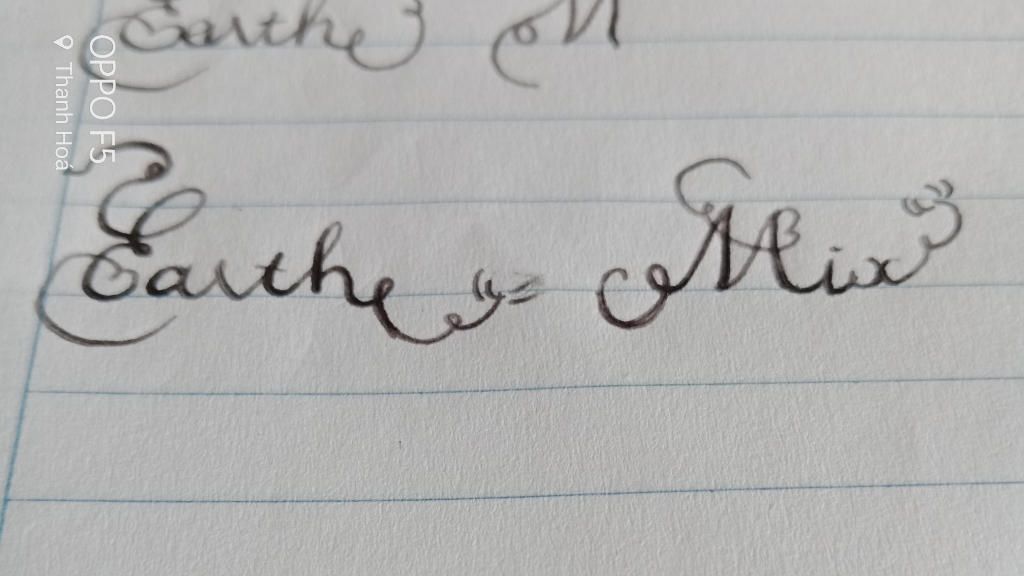 Earthe M
Earthe Mix
OPPO F5
Thanh Hoá